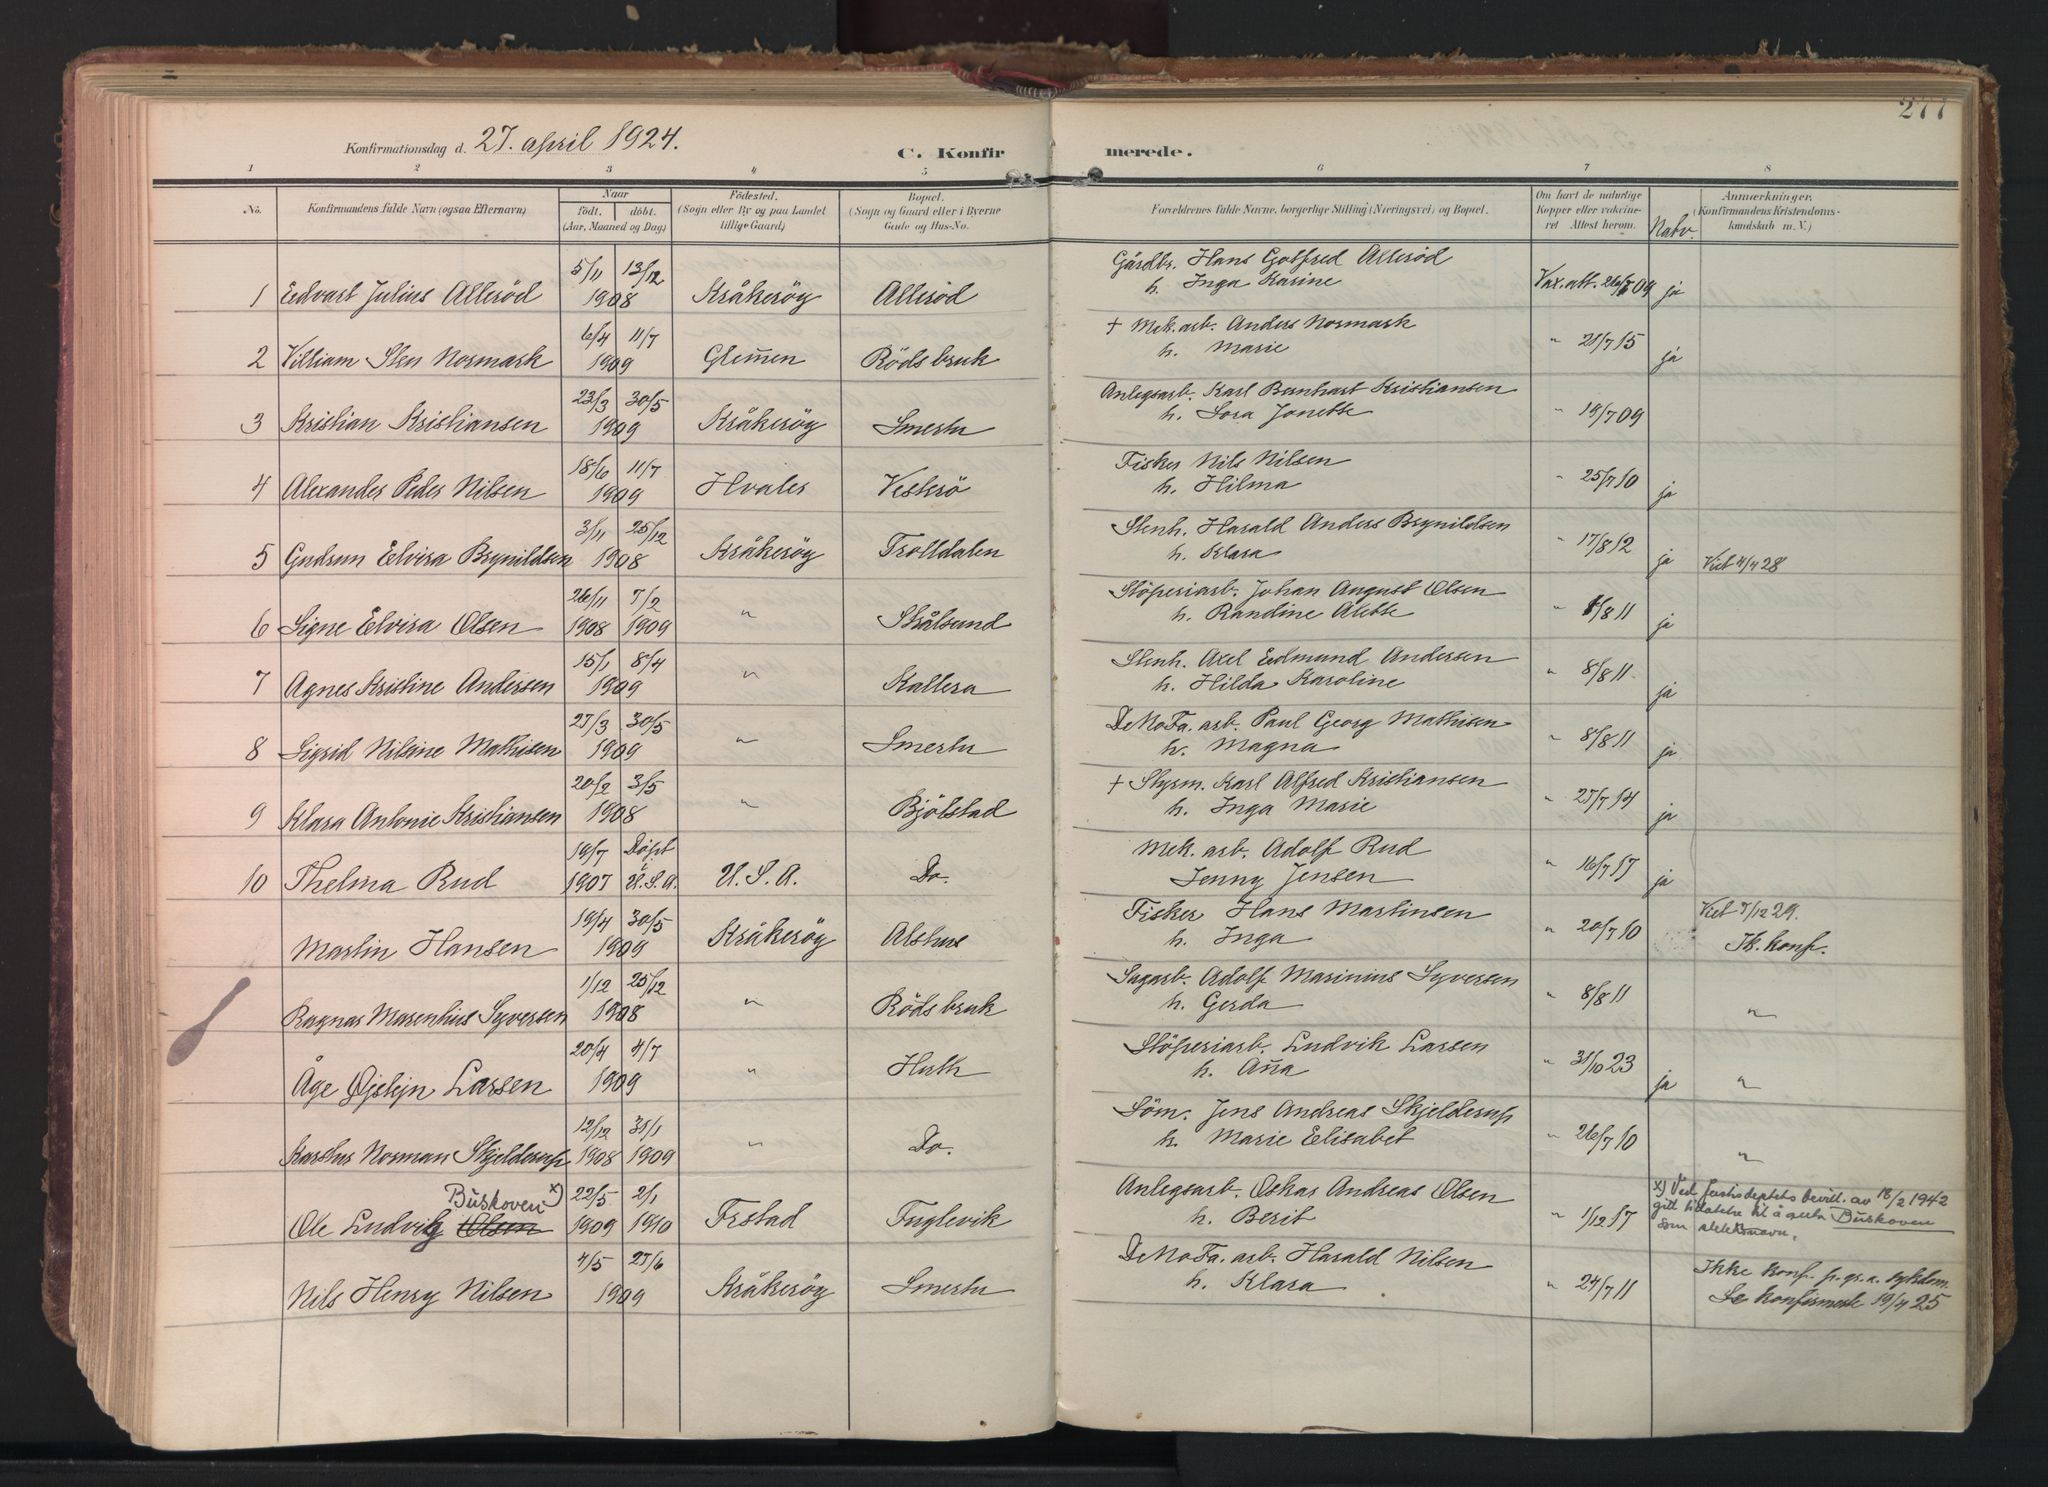 277
Konfirmationsdag d. 27. april 1924.
C. Konfirmerede.
1 2 3 4 5 6 7 8
No. Konfirmandens fulde Navn (ogsaa Efternavn) Naar födt. döbt. (Aar, Maaned og Dag) Födested. (Sogn eller By og paa Landet tillige Gaard) Bopæl. (Sogn og Gaard eller i Byerne Gade og Hus-No. Forældrenes fulde Navne, borgerlige Stilling (Næringsvei) og Bopæl. Om havt de naturlige Kopper eller vakcineret. Attest herom. Natv. Anmærkninger. (Konfirmandens Kristendomskundskab m. V.)
5/11 13/12 Gårdbr. Hans Gotfred Alleröd
1 Edvart Julius Alleröd 1908 Kråkeröy Alleröd h. Inga Karine Vax. att. 09 ja
6/4 11/7 + Mek. arb. Anders Normark
2 Villiam Sten Normark 1909 Glem̄en Röds bruk h. Marie " 21/7 15 ja
23/3 30/5 Anlegsarb. Karl Bernhart Kristiansen
3 Kristian Kristiansen 1909 Kråkeröy Smertu h. Lora Jonette " 19/7 09
18/6 11/7 Fisker Nils Nilsen
4 Alexander Peder Nilsen 1909 Hvaler Vesterö h. Hilma " 25/7 10 ja
3/11 25/12 Stenh. Harald Anders Brynildsen
5 Gudrun Elvira Brynildsen 1908 Kråkeröy Trolldalen h. Klara " 17/8 12 ja Viet 4/4 28
26/11 7/2 Stöperiarb. Johan August Olsen
6 Signe Elvira Olsen 1908 1909 " Skålsund h. Randine Alette " 8/8 11 ja
15/1 8/4 Stenh. Axel Edmund Andersen
7 Agnes Kristine Andersen 1909 " Kallera h. Hilda Karoline " 8/8 11. ja
27/3 30/5 DeNoFa. arb. Paul Georg Mathisen
8 Sigrid Nilsine Mathisen 1909 " Smertu h. Magna " 8/8 11 ja
20/2 3/5 + Styrm. Karl Alfred Kristiansen
9 Klara Antonie Kristiansen 1908 " Bjölstad h. Inga Marie " 27/7 14 ja
19/7 Döpt i Mek. arb. Adolf Rud
10 Thelma Rud 1907 U.S.A. U.S.A. Do. Jenny Jensen " 16/7 17 ja
19/4 30/5 Fisker Hans Martinsen Viet 7/12 29.
Martin Hansen 1909 Kråkeröy Alshus h. Inga " 20/7 10 Ik. konf.
1/12 25/12 Sagarb. Adolf Marinius Syversen
Ragnar Marenhius Syversen 1908 " Röds bruk h. Gerda " 8/8 11 "
20/4 4/7 Stöperiarb. Ludvik Larsen
Åge Øistejn Larsen 1909 " Huth h. An̄a " 31/10 23 ja "
12/12 31/1 Söm. Jens Andreas Skjelderup
Karsten Norman Skjelderup 1908 1909 " Do. h. Marie Elisabet " 26/7 10 "
Buskoven x) 22/5 2/1 Anlegsarb. Oskar Andreas Olsen x) Ved Justisdeptets bevill. av 18/2 1942
Ole Ludvig Olsen 1909 1910 Frstad Fuglevik h. Berit " 1/12 17 gitt tillatelse til å anta Buskoven
som slektsnavn.
4/5 27/6 DeNoFa. arb. Harald Nilsen Ikke konf. p. gr. a. sykdom.
Nils Henry Nilsen 1909 Kråkeröy Smertu h. Klara " 24/7 11 Se konfirmerte 19/4 25